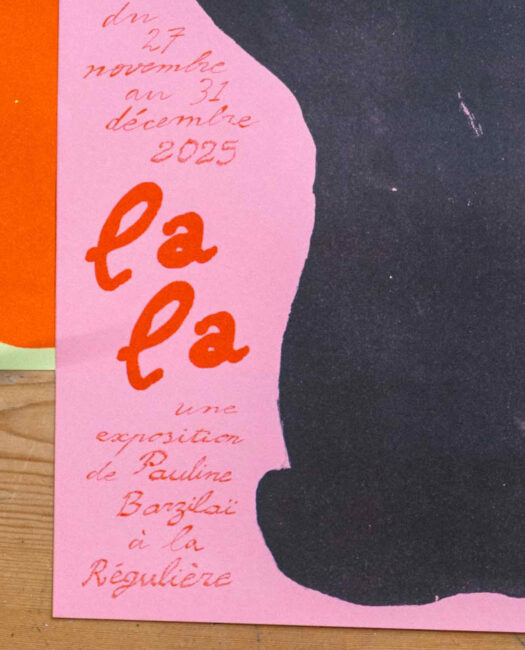 du
27
novembre
au 31
décembre
2025
la
la
une
exposition
de Pauline
Barzilaï
à la
Régulière